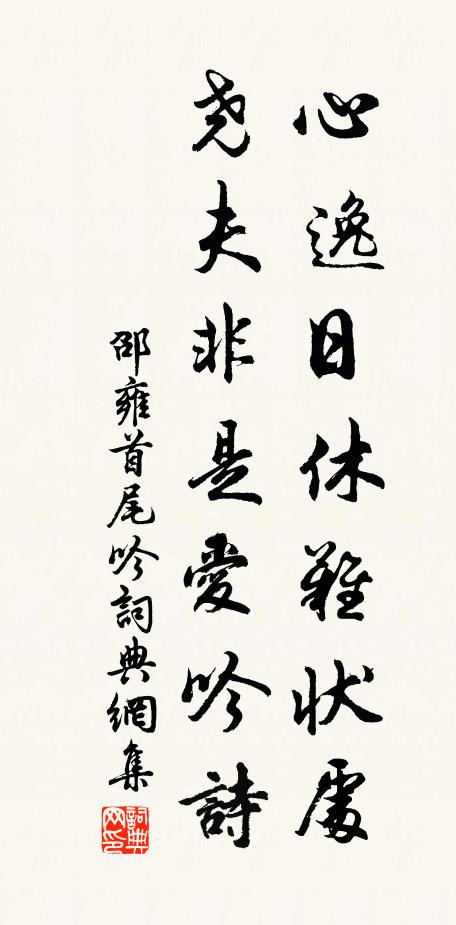 心逸日休難狀處
尧夫非是愛吟詩
邵雍首尾吟詞典網集
詞典网印